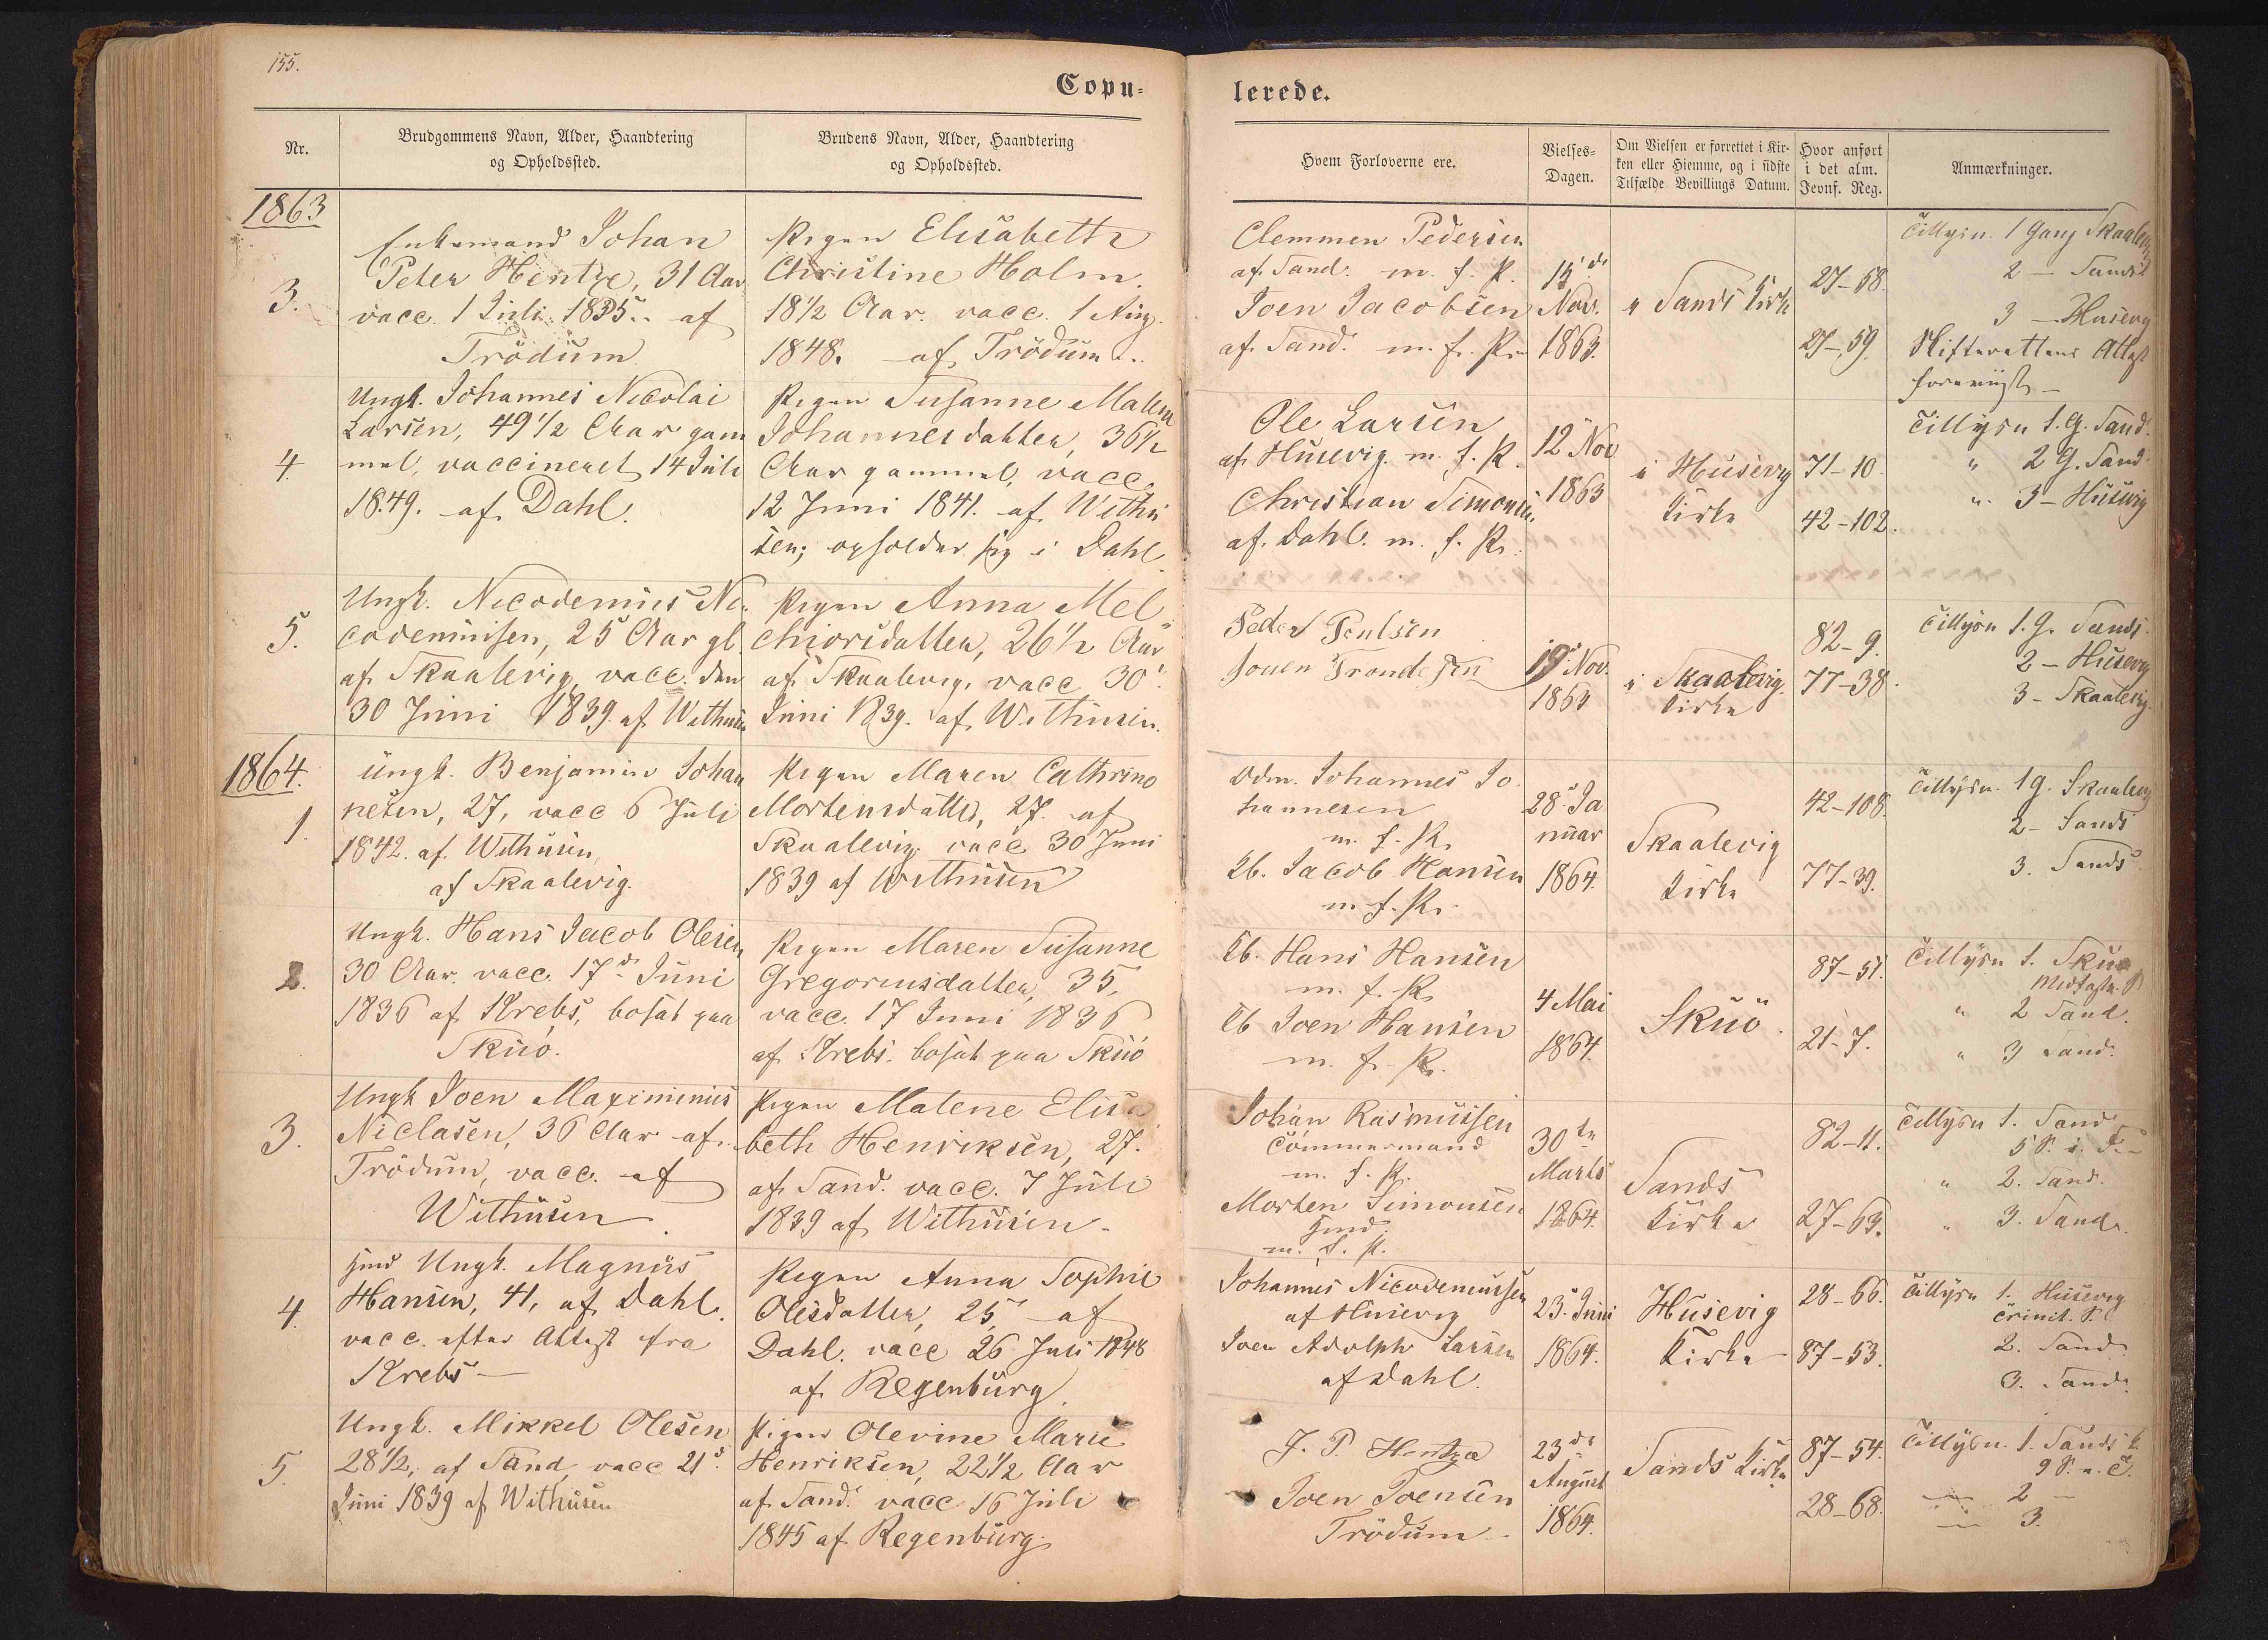 155.
Copu-
lerede.
Nr.
Brudgommens Navn, Alder, Haandtering
og Opholdssted.
Brudens Navn, Alder, Haandtering
og Opholdssted.
Hvem Forloverne ere.
Vielses-
Dagen.
Om Vielsen er forrettet i Kir-
ken eller Hjemme, og i sidste
Tilfælde Bevillings Datum.
Hvor anført
i det alm.
Jevnf. Reg.
Anmærkninger.
1863
3.
Enkemand Johan
Peter Hentze, 31 Aar
vacc. 1 Juli 1835. af
Trödum
Pigen Elisabeth
Christine Holm.
18 1/2 Aar. vacc. 1 Aug.
1848. af Trödum
Clemmen Pedersen
af Sand. m. f. P.
Joen Jacobsen
af Sand. m. f. P.
Nov.
1863.
i Sands Kirke
27-58.
27-59.
Tillysn. 1 Gang Skaalevig
2 - Sands
3 - Husevig
Skifterettens Attest
foreviist
4.
Ungk. Johannes Nicolai
Larsen, 49 1/2 Aar gam
mel, vaccineret 14 Juli
1849. af Dahl.
Pigen Susanne Malene
Johannesdatter, 36 1/2
Aar gammel, vacc.
12 Juni 1841. af Withu
sen; opholder sig i Dahl
Ole Larsen
af Husevig. m. f. P.
Christian Simonsen
af Dahl. m. f. P.
12 Nov
1863
i Husevig
Kirke
71-10.
42-102.
Tillysn 1. G. Sand.
" 2 G. Sand
" 3 - Husevig
5.
Ungk. Nicodemus Ni-
codemusen, 25 Aar gl.
af Skaalevig, vacc. den
30 Juni 1839. af Withusen
Pigen Anna Mel
chiorsdatter, 26 1/2 Aar
af Skaalevig, vacc 30
Juni 1839. af Withusen.
Peder Poulsen
Jouen Trondesen
19 Nov.
1863
i Skaalevig
Kirke
82-9.
77-38.
Tillysn 1. G. Sands
2 - Husevig
3 - Skaalevig
1864.
1.
Ungk. Benjamin Johan
nesen, 27, vacc 6 Juli
1842. af Withusen,
af Skaalevig.
Pigen Maren Cathrine
Mortensdatter, 27. af
Skaalevig. vacc 30 Juni
1839 af Withusen
Johannes Jo
hannesen
m. f. P.
Jacob Hansen
m. f. P.
28. Ja
nuar
1864.
Skaalevig
Kirke
42-108.
77-39.
Tillysn. 1 g. Skaalevig
2 - Sands
3. Sands
2.
Ungk. Hans Jacob Olesen
30 Aar. vacc. 17 Juni
1836 af Krebs, bosat paa
Skuö.
Pigen Maren Susanne
Gregoriusdatter, 35,
vacc. 17 Juni 1836
af Krebs. bosat paa Skuö
Hans Hansen
m. f. P.
Joen Hansen
m. f. P.
4 Mai
1864.
Skuö.
87-51.
21-7.
Tillysn 1. Skuö
Midfaste. S
" 2 Sand.
" 3 Sand.
3.
Ungk Joen Maximinus
Niclasen, 36 Aar af
Trödum, vacc. af
Withusen
Pigen Malene Elisa
beth Henriksen, 27.
af Sand. vacc. 7 Juli
1839 af Withusen
Johan Rasmussen
Tömmermand
m. f. P.
Morten Simonsen
m. f. P.
30te
Marts
1864.
Sands
Kirke
82-11.
27-63.
Tillysn 1. Sand
5 S. i. F.
" 2. Sand.
" 3. Sand.
4.
Ungk. Magnus
Hansen, 41, af Dahl.
vacc. efter Attest fra
Krebs
Pigen Anna Sophie
Olesdatter, 25, af
Dahl. vacc 26 Juli 1848
af Regenburg.
Johannes Nicodemussen
af Husevig
Joen Adolph Larsen
af Dahl.
23. Juni
1864.
Husevig
Kirke
28-66.
87-53.
Tillysn 1. Husevig
Trinit. S.
2. Sand
3. Sand.
5
Ungk. Mikkel Olesen
28 1/2, af Sand vacc 21
Juni 1839 af Withusen
Pigen Olevine Marie
Henriksen, 22 1/2 Aar
af Sand. vacc 16 Juli
1845 af Regenburg.
J. P. Hentze
Joen Joensen
Trödum
23de
August
1864.
Sands Kirke
87-54.
28-68.
Tillysn. 1. Sands K
9 S. e. T.
— 2 —
— 3.